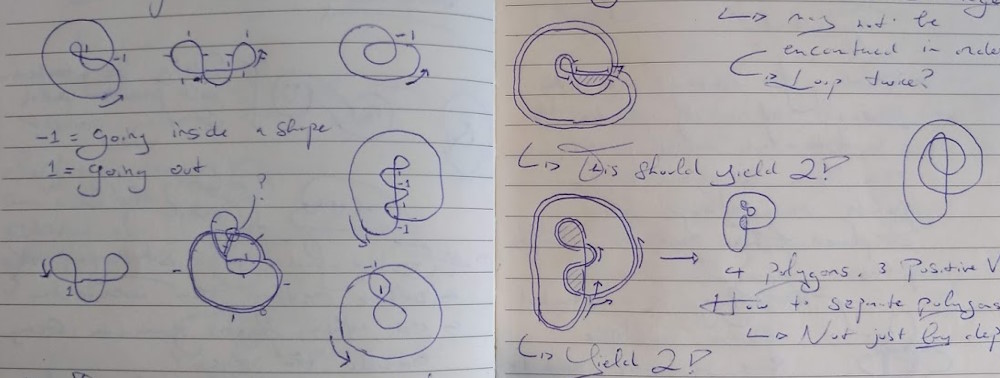 -1
1
-1
-1 = Going inside a shape
1 = Going out
?
-1
-1
-1
1
-1
↳ may not be
encountered in orde
↳ Loop twice?
↳ This should yield 2!
→ 4 polygons. 3 Positive V
How to separate polygons
↳ Not just by dep
↳ Yield 2!